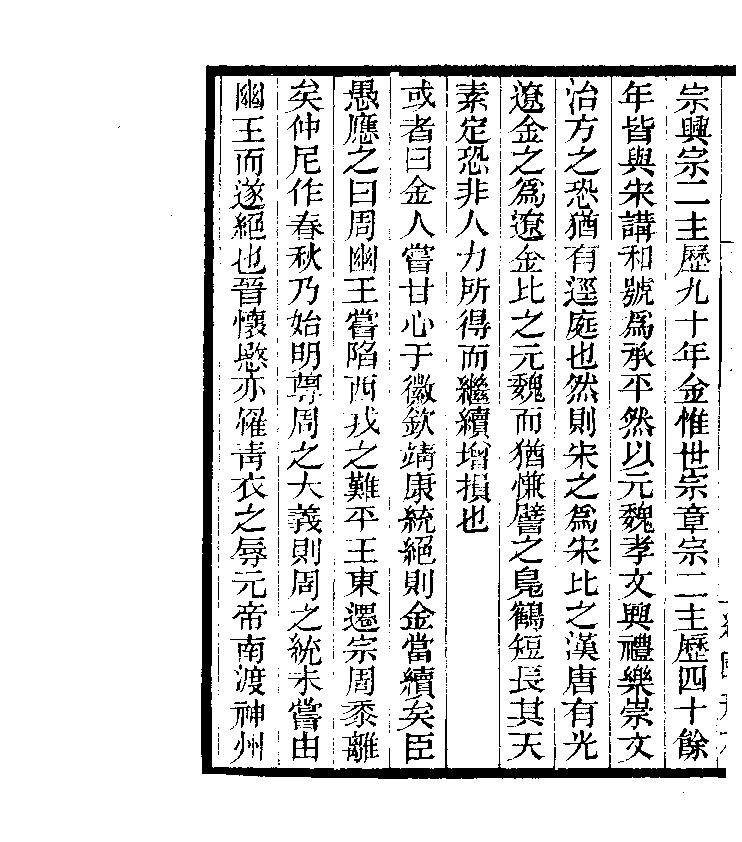 宗興宗二主歷九十年金惟世宗章宗二主歷四十餘
年皆與宋講和號為承平然以元魏孝文興禮樂崇文
治方之恐猶有逕庭也然則宋之為宋比之漢唐有光
遼金之為遼金比之元魏而猶慊譬之鳧鶴短長其天
素定恐非人力所得而繼續增損也
或者曰金人嘗甘心于徽欽靖康統絕則金當續矣臣
愚應之曰周幽王嘗陷西戎之難平王東遷宗周黍離
矣仲尼作春秋乃始明尊周之大義則周之統未嘗由
幽王而遂絕也晉懷愍亦罹青衣之辱元帝南渡神州